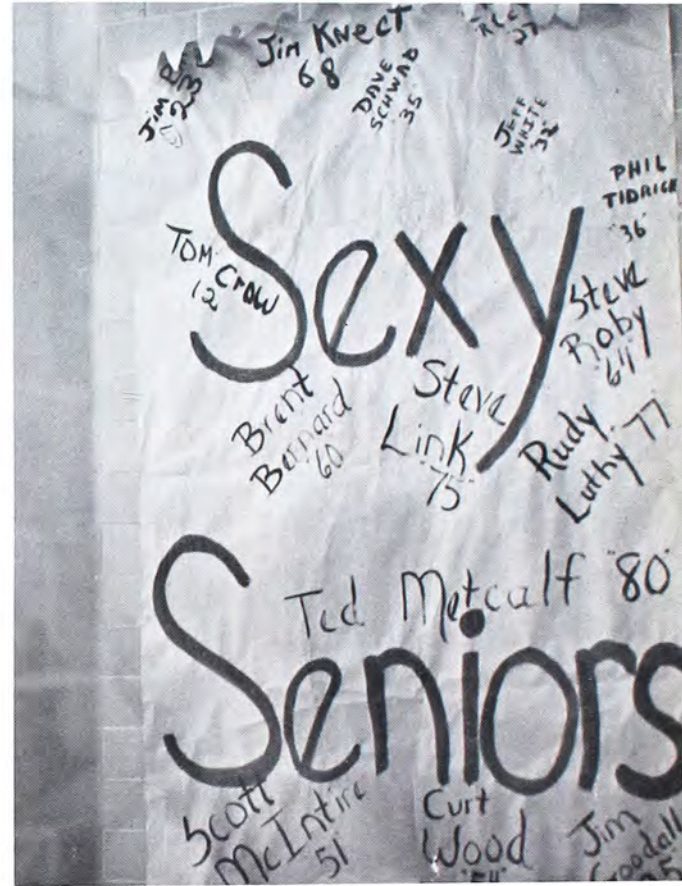 Jim KNecT
68
27
Jim
23
DAVE
SCHWAB
'35'
JEFF
WHITE
32
PHIL
TIDRICK
"36"
Sexy
TOM Crow
12
Steve
Roby
"64"
Brent
Bernard
'60
Steve
Link
75
Rudy
Luthy 77
Ted Metcalf "80"
Seniors
Scott
McIntire
51
Curt
Wood
"54"
Jim
Goodall